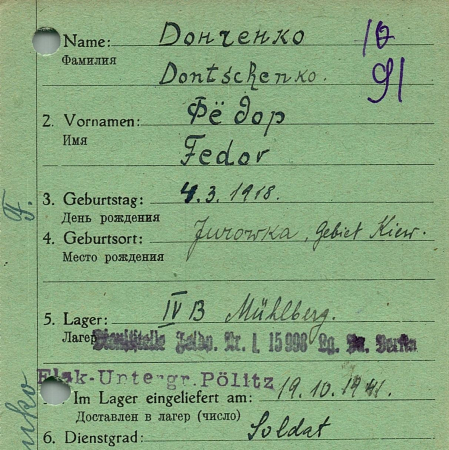 Name: Донченко 10
Фамилия
Dontschenko. 91
2. Vornamen: Фёдор
Имя
Fedor
3. Geburtstag: 4.3.1918.
День рождения
4. Geburtsort: Jurowka, Gebiet Kiew.
Место рождения
5. Lager: IV B Mühlberg.
Лагерь Dienststelle Feldp. Nr. L 15908 Lg. Pa. Berlin
Flak-Untergr. Pölitz
Im Lager eingeliefert am: 19.10.1941.
Доставлен в лагерь (число)
6. Dienstgrad: Soldat